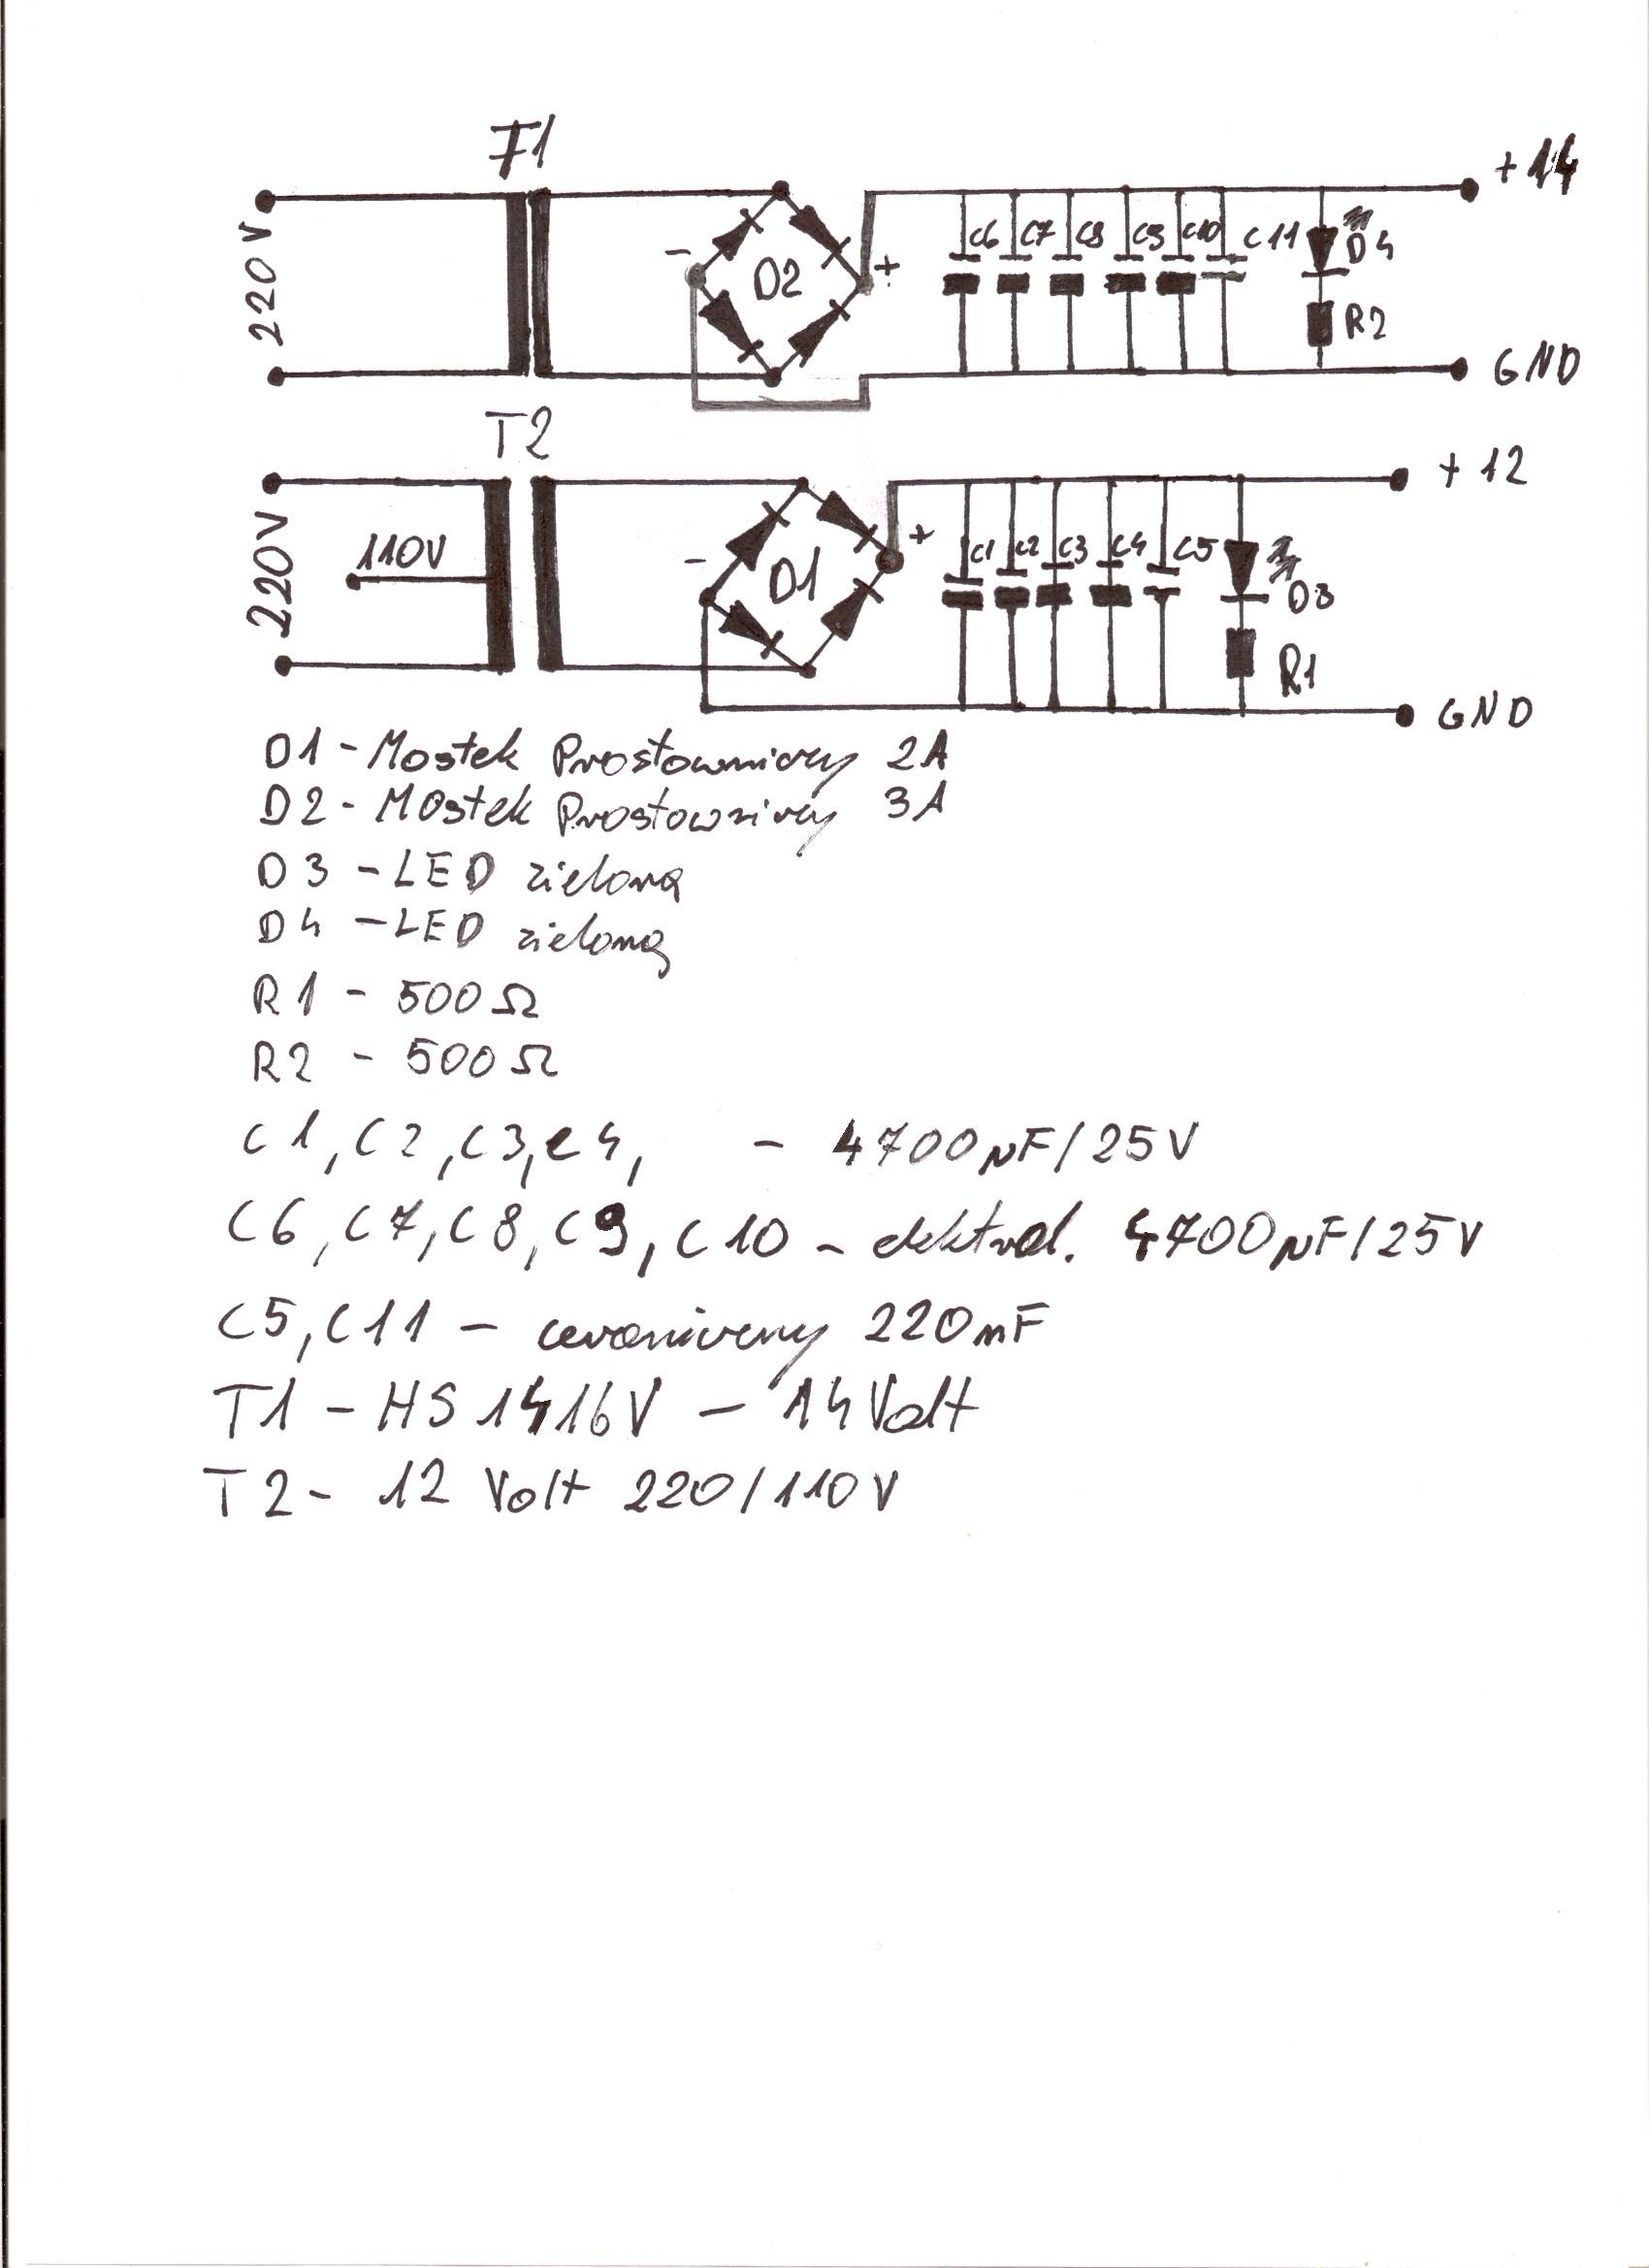 T1
+14
220V
-
D2
+
C6 C7 C8 C9 C10 C11
D4
R2
GND
T2
+12
220V
110V
-
D1
+
C1 C2 C3 C4 C5
D3
R1
GND
D1 - Mostek Prostowniczy 2A
D2 - Mostek Prostowniczy 3A
D3 - LED zielona
D4 - LED zielona
R1 - 500Ω
R2 - 500Ω
C1, C2, C3, C4, - 4700µF/25V
C6, C7, C8, C9, C10 - elektrol. 4700µF/25V
C5, C11 - ceramiczny 220nF
T1 - HS1416V - 14Volt
T2 - 12 Volt 220/110V